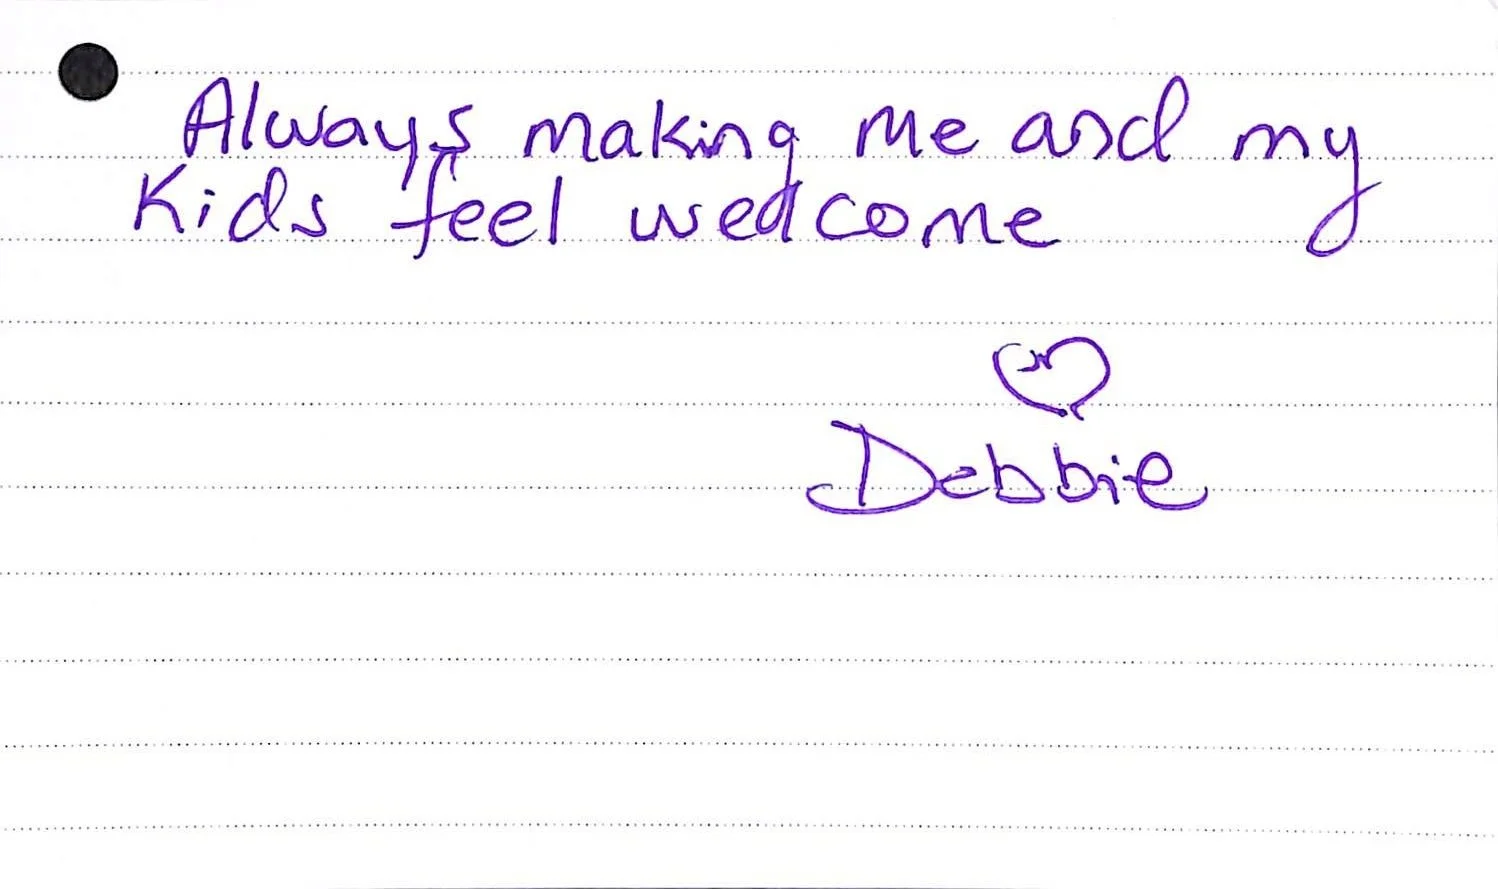 Always making me and my
Kids feel welcome
Debbie